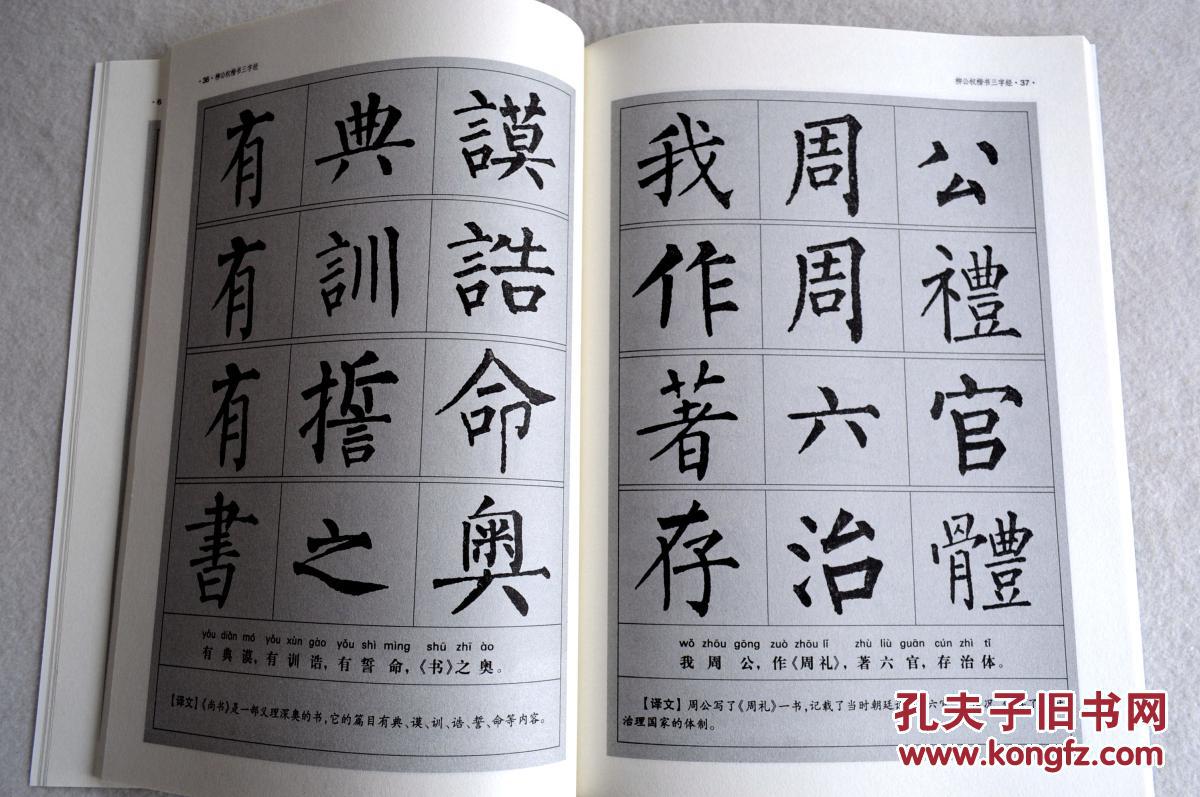 ·36·柳公权楷书三字经
有典謨
有訓誥
有誓命
書之奧
yǒu diǎn mó yǒu xùn gào yǒu shì mìng shū zhī ào
有典谟，有训诰，有誓命，《书》之奥。
【译文】《尚书》是一部义理深奥的书，它的篇目有典、谟、训、诰、誓、命等内容。
柳公权楷书三字经·37·
我周公
作周禮
著六官
存治體
wǒ zhōu gōng zuò zhōu lǐ zhù liù guān cún zhì tǐ
我周公，作《周礼》，著六官，存治体。
【译文】周公写了《周礼》一书，记载了当时朝廷
治理国家的体制。
6
孔夫子旧书网
www.kongfz.com